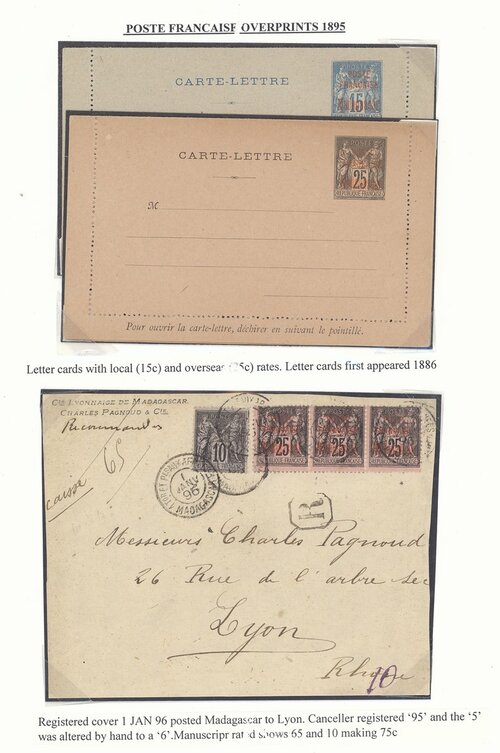 POSTE FRANCAISE OVERPRINTS 1895
CARTE-LETTRE
POSTE
FRANÇAISE
15
CARTE-LETTRE
POSTES
25
REPUBLIQUE FRANCAISE
M
Pour ouvrir la carte-lettre, déchirer en suivant le pointillé.
Letter cards with local (15c) and overseas (25c) rates. Letter cards first appeared 1886
Cie LYONNAISE DE MADAGASCAR.
CHARLES PAGNOUD & Cie.
Recommandée
65
caisse
10
25
25
25
1
JANV
96
MADAGASCAR
R
Messieurs Charles Pagnoud
26 Rue de l'arbre sec
Lyon
Rhône
10
Registered cover 1 JAN 96 posted Madagascar to Lyon. Canceller registered ‘95’ and the ‘5’
was altered by hand to a ‘6’.Manuscript rated shows 65 and 10 making 75c